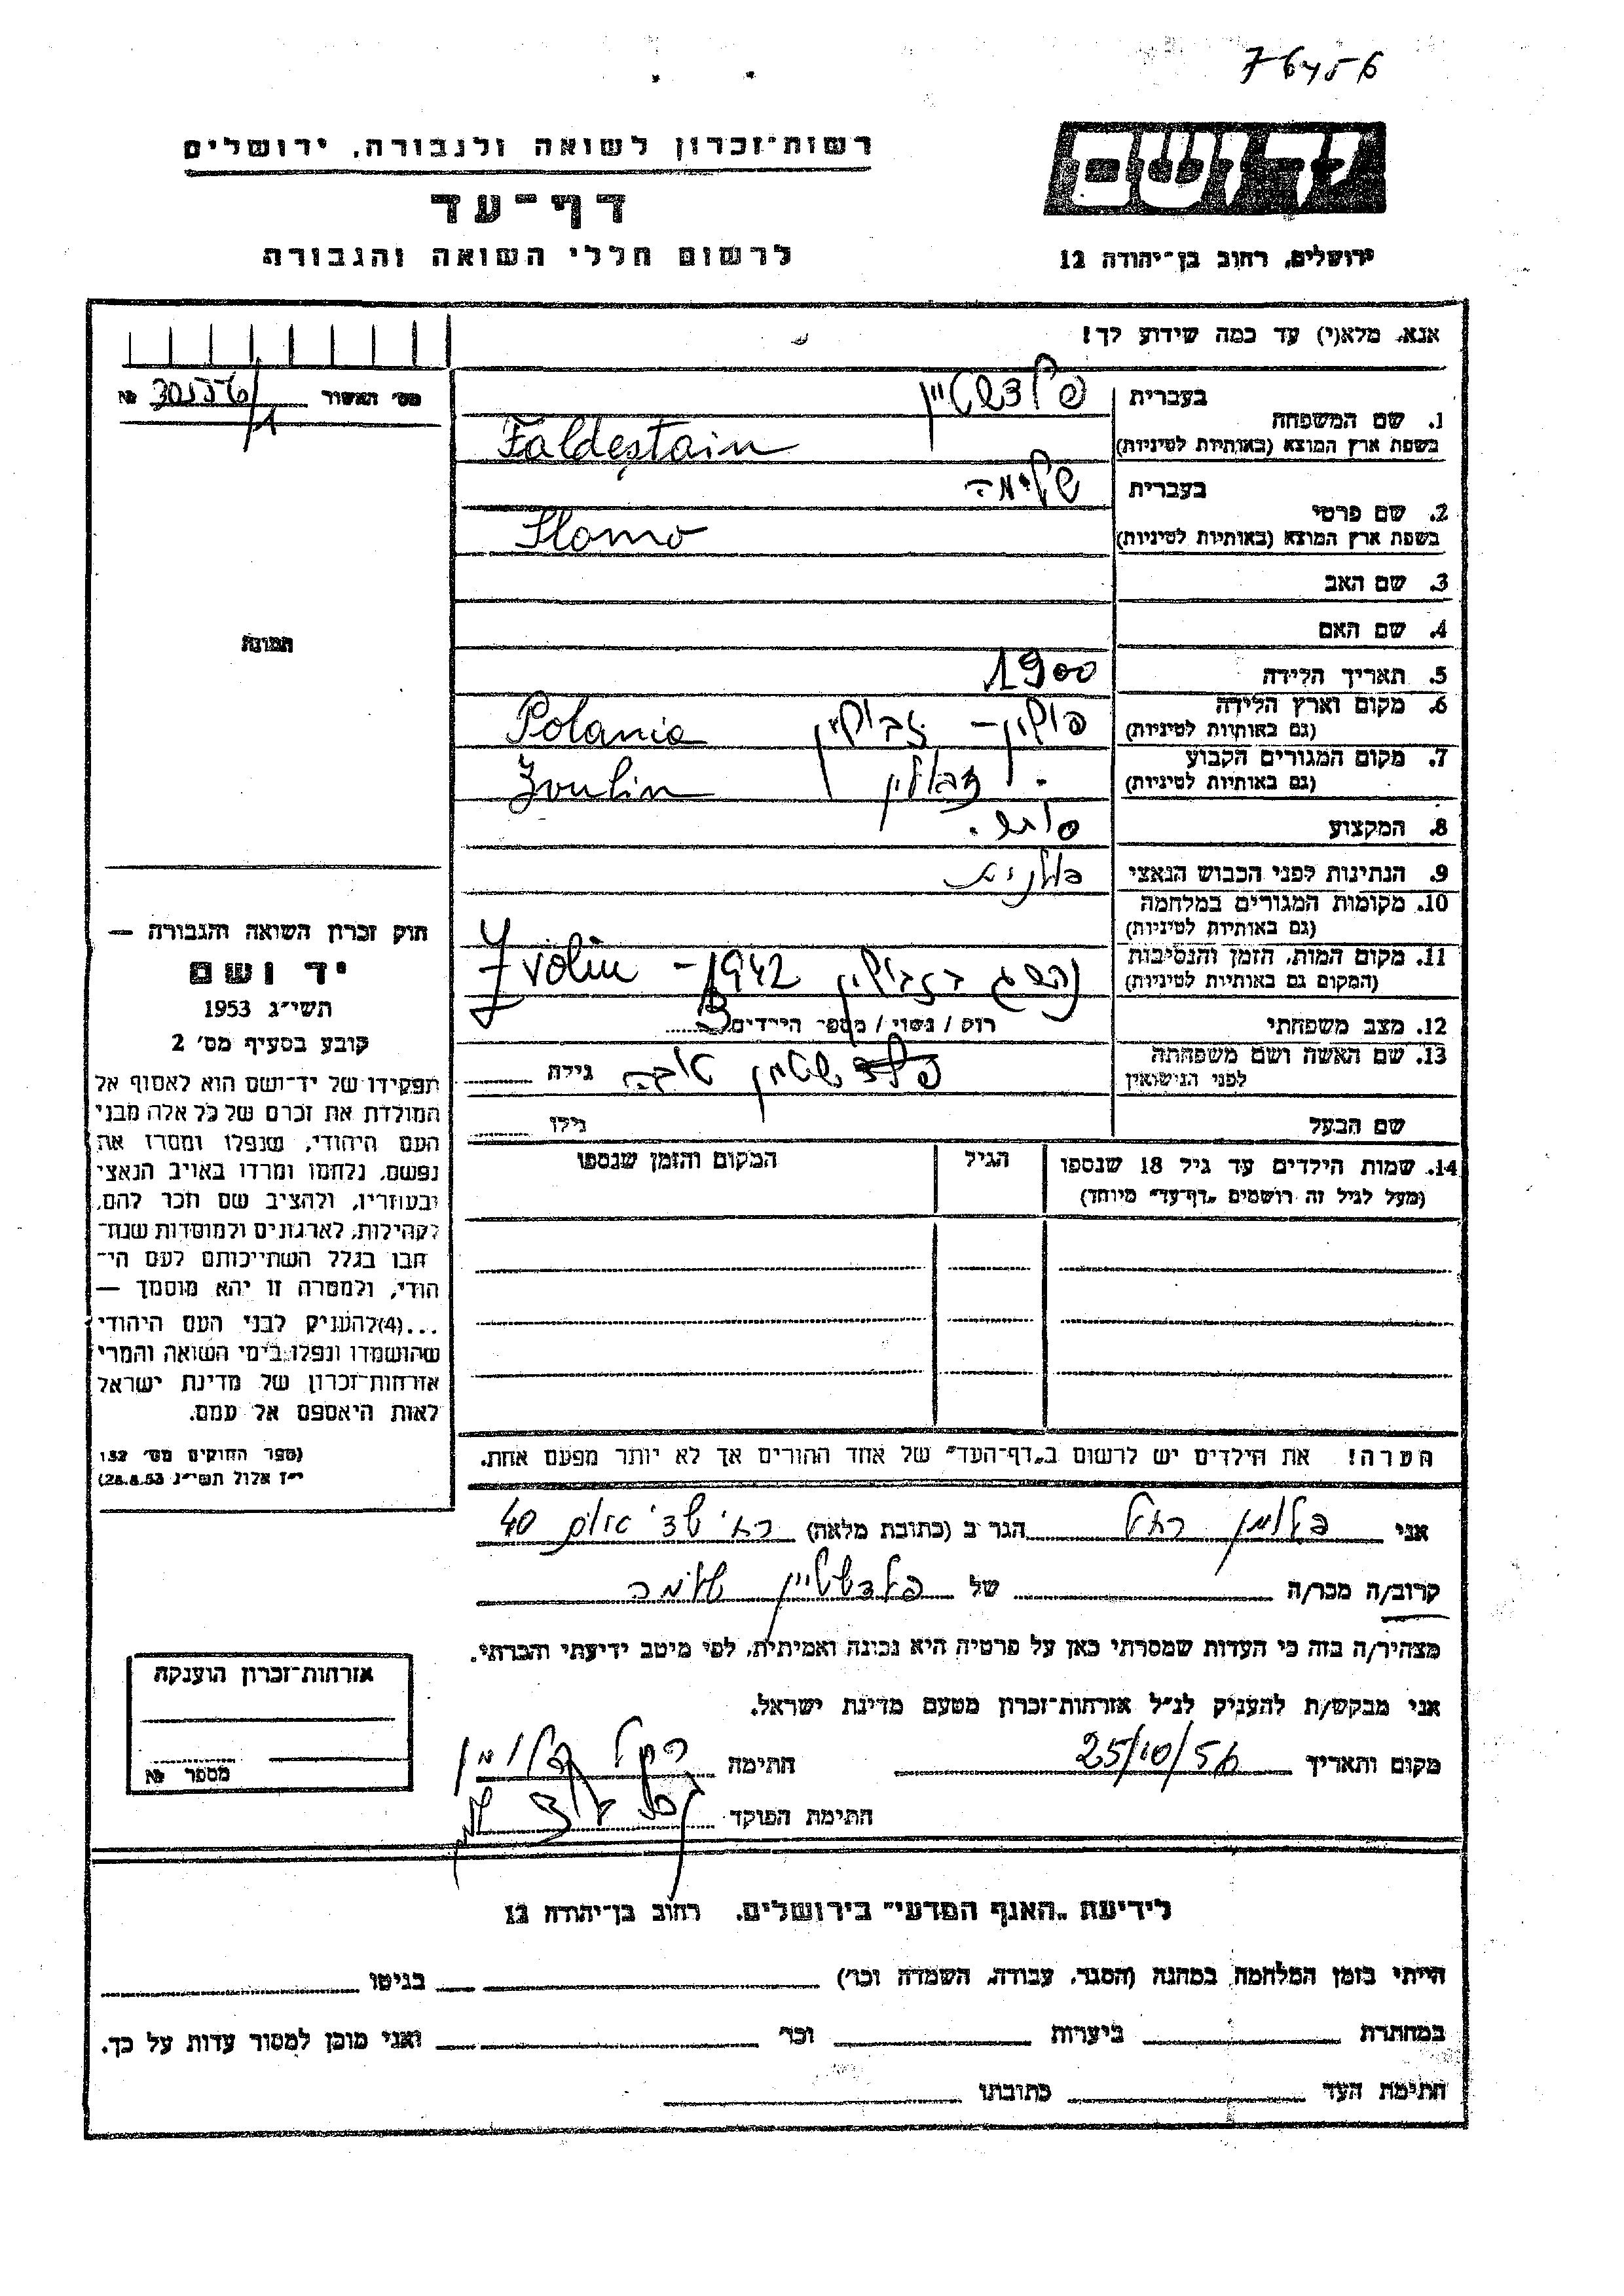 76456
רשות־זכרון לשואה ולגבורה, ירושלים
דף־עד
לרשום חללי השואה והגבורה
יד ושם
ירושלים, רחוב בן־יהודה 12
אנא, מלא(י) עד כמה שידוע לך!
מס׳ האשור № 30556/1
1. שם המשפחה
בעברית פלדשטיין
בשפת ארץ המוצא (באותיות לטיניות) Faldestain
2. שם פרטי
בעברית שלימה
בשפת ארץ המוצא (באותיות לטיניות) Slomo
3. שם האב
4. שם האם
5. תאריך הלידה 1900
6. מקום וארץ הלידה
(גם באותיות לטיניות) Polania
7. מקום המגורים הקבוע
(גם באותיות לטיניות) Zvulin
8. המקצוע
9. הנתינות לפני הכבוש הנאצי
10. מקומות המגורים במלחמה
(גם באותיות לטיניות)
11. מקום המות, הזמן והנסיבות
(המקום גם באותיות לטיניות) 1942 – Zvolin
12. מצב משפחתי רוק / נשוי / מספר הילדים 3
13. שם האשה ושם משפחתה
לפני הנישואין פלדשטיין טובה גילה
שם הבעל גילו
14. שמות הילדים עד גיל 18 שנספו
(מעל לגיל זה רושמים „דף־עד״ מיוחד)
הגיל
המקום והזמן שנספו
הערה! את הילדים יש לרשום ב„דף־העד״ של אחד ההורים אך לא יותר מפעם אחת.
תמונה
חוק זכרון השואה והגבורה —
יד ושם
תשי״ג 1953
קובע בסעיף מס׳ 2
תפקידו של יד־ושם הוא לאסוף אל
המולדת את זכרם של כל אלה מבני
העם היהודי, שנפלו ומסרו את
נפשם, נלחמו ומרדו באויב הנאצי
ובעוזריו, ולהציב שם וזכר להם,
לקהילות, לארגונים ולמוסדות שנח־
רבו בגלל השתייכותם לעם הי־
הודי, ולמטרה זו יהא מוסמך —
...(4)להעניק לבני העם היהודי
שהושמדו ונפלו בימי השואה והמרי
אזרחות־זכרון של מדינת ישראל
לאות היאספם אל עמם.
(ספר החוקים מס׳ 132
י״ז אלול תשי״ג 28.8.53)
אני פלומן רחל הגר ב (כתובת מלאה) 40
קרוב/ה מכר/ה של פלדשטיין שלימה
מצהיר/ה בזה כי העדות שמסרתי כאן על פרטיה היא נכונה ואמיתית, לפי מיטב ידיעתי והכרתי.
אני מבקש/ת להעניק לנ״ל אזרחות־זכרון מטעם מדינת ישראל.
מקום ותאריך 25/10/56 חתימה רחל פלומן
חתימת הפוקד
אזרחות־זכרון הוענקה
מספר №
לידיעת „האגף המדעי״ בירושלים, רחוב בן־יהודה 12
הייתי בזמן המלחמה במחנה (הסגר, עבודה, השמדה וכו׳) בגיטו
במחתרת ביערות וכו׳ ואני מוכן למסור עדות על כך.
חתימת העד כתובתו